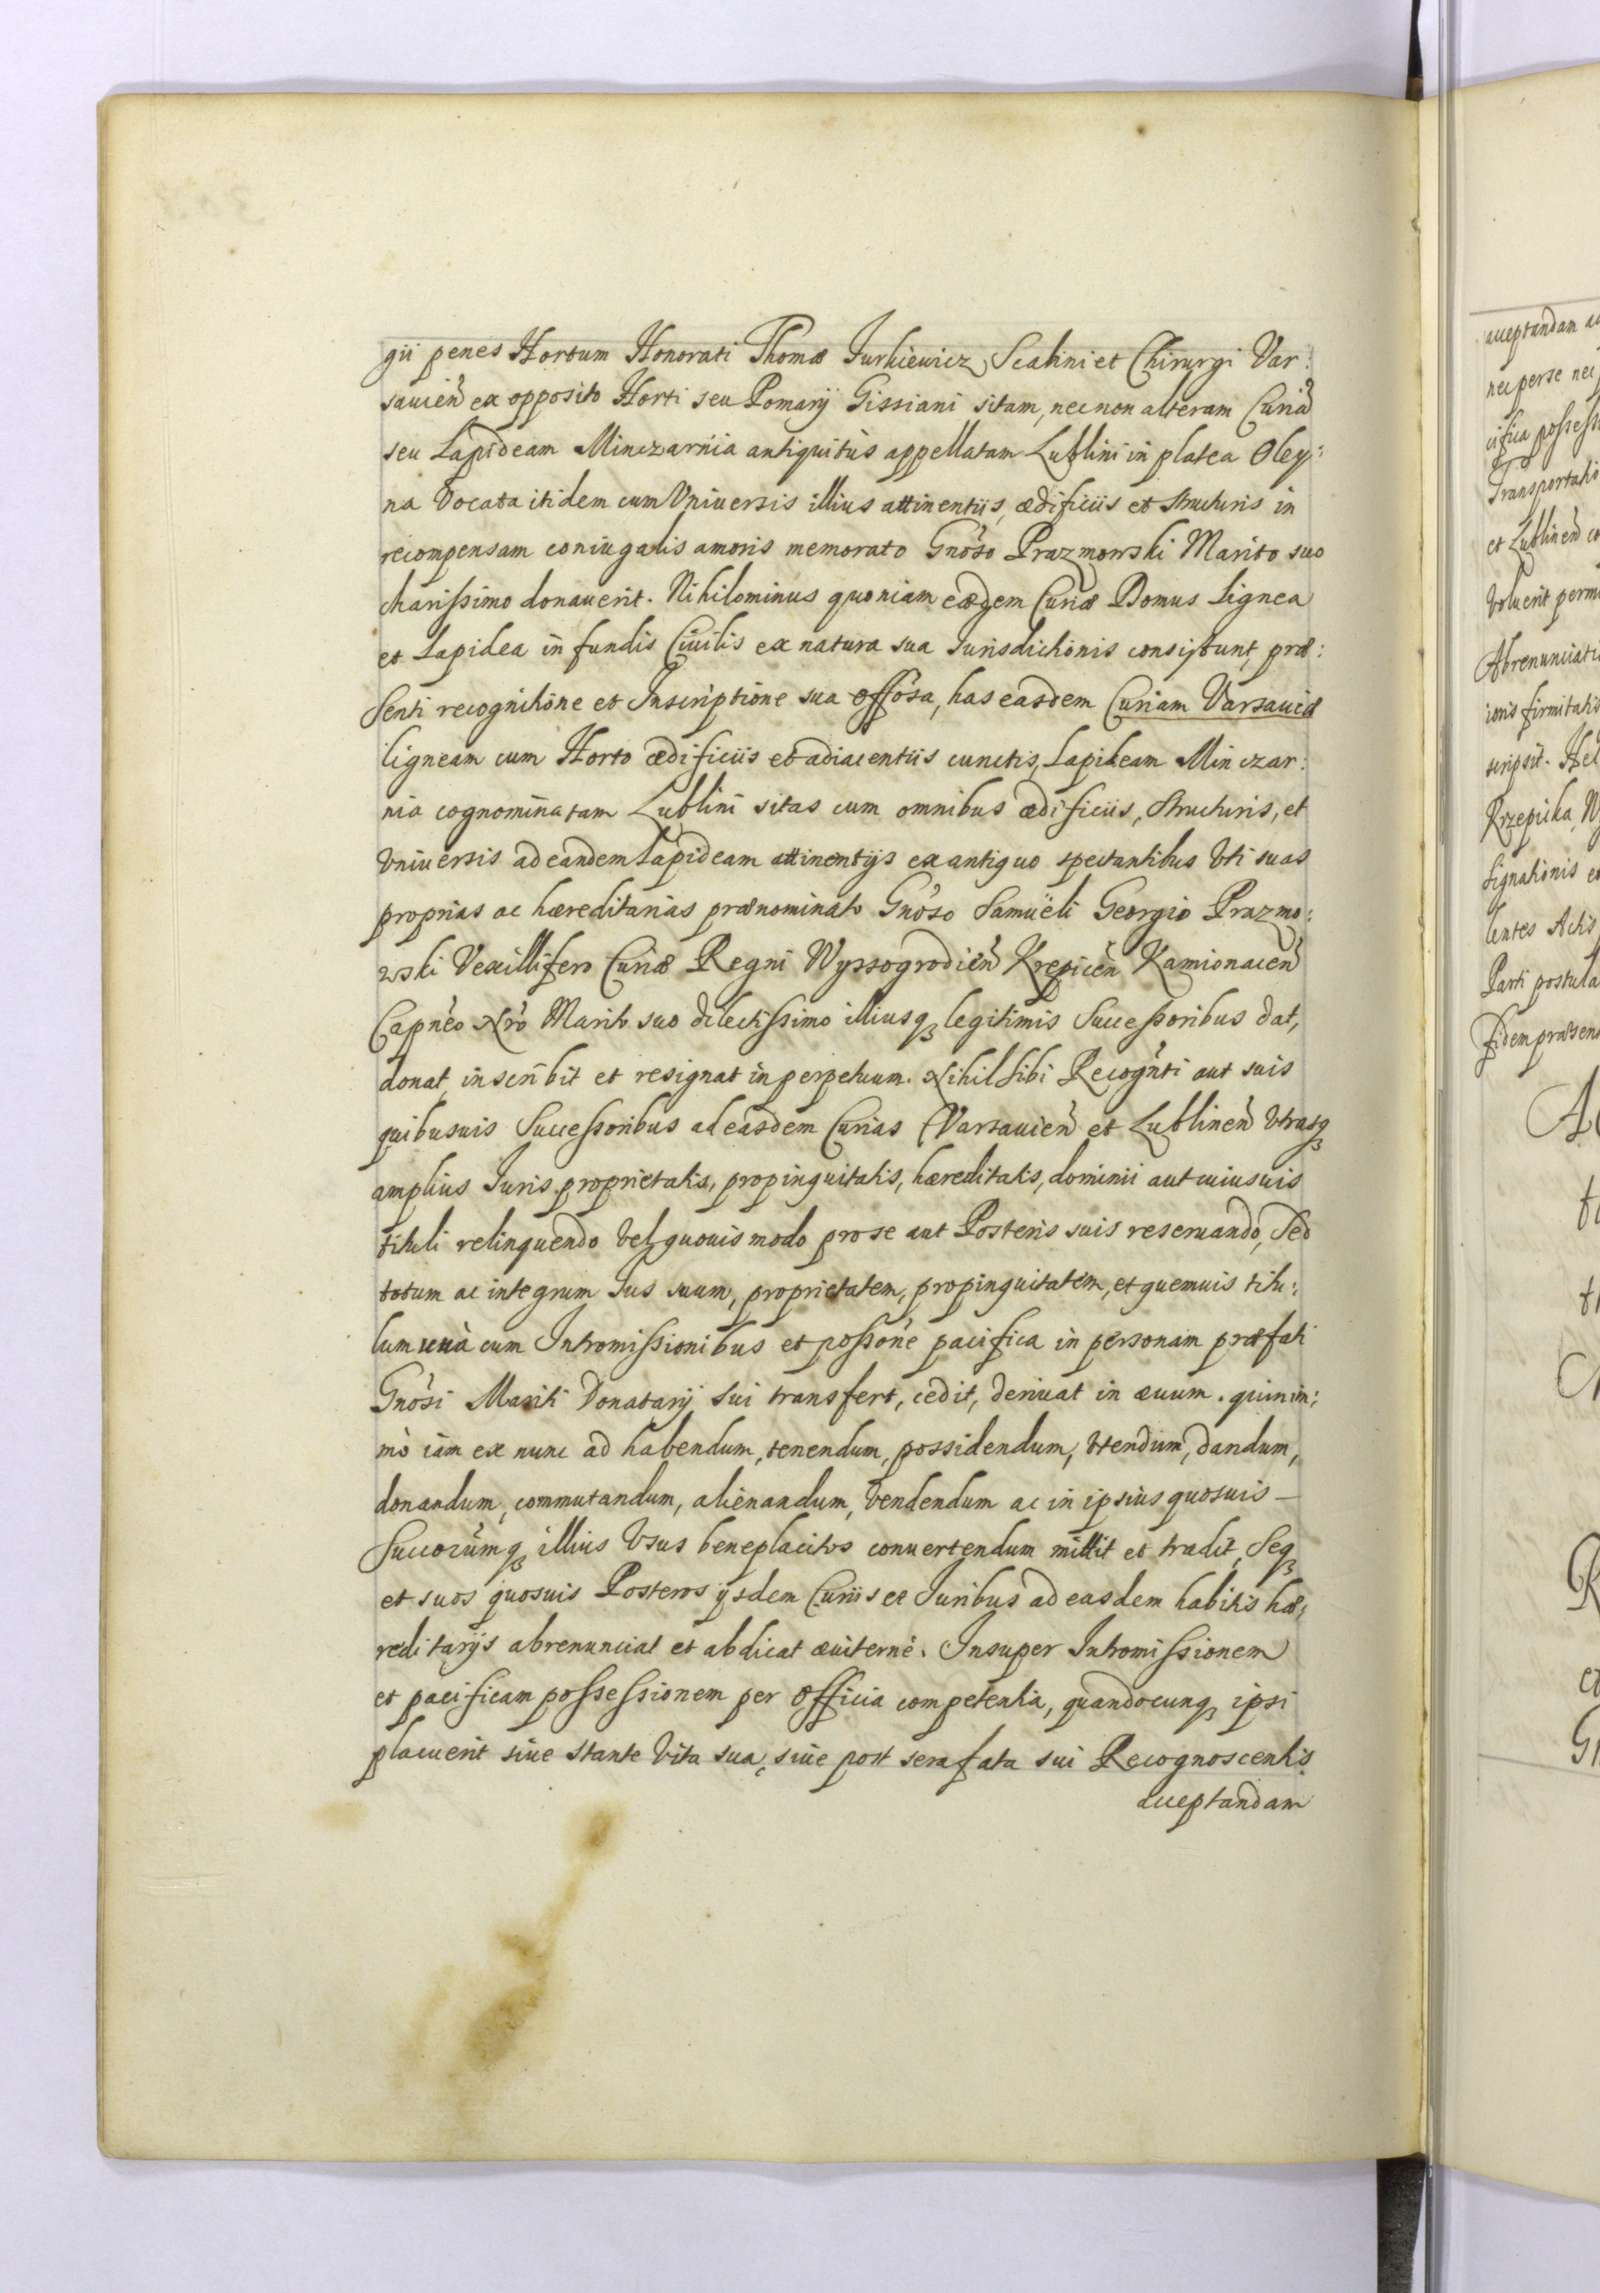 gii penes Hortum Honorati Thomæ Jurkiewicz Scabini et Chirurgi Var:
savień ex opposito Horti seu Pomarÿ Gissiani sitam, necnon alteram Curiã
seu Lapideam Minczarnia antiquitùs appellatam Lublini in platea Oley:
na vocata itidem cum Vniversis illius attinentiis, ædificiis et structuris in
recompensam coniugalis amoris memorato Gnõso Prazmowski Marito suo
charissimo donauerit. Nihilominus quoniam eædem Curiæ Domus Lignea
et Lapidea in fundis Ciuilis ex natura sua Jurisdictionis consistunt, præ:
senti recognitione et Inscriptione sua offõsa, has easdem Curiam Varsauiẽ
ligneam cum Horto ædificiis et adiacentiis cunctis, Lapideam Minczar:
nia cognominatam Lublini sitas cum omnibus ædificiis, structuris, et
Vniuersis ad eandem Lapideam attinentÿs ex antiquo spectantibus Vti suas
proprias ac hæreditarias prænominato Gnõso Samuëli Georgio Prazmo:
wski Vexillifero Curiæ Regni Wyssogrodień Krepiceñ Kamionaceñ
Capnẽo Nrõ Marito suo dilectissimo illiusqꝫ legitimis Successoribus dat,
donat, inscribit et resignat in perpetuum. Nihil sibi Recognti aut suis
quibusuis Successoribus ad easdem Curias Varsauień et Lublineñ Vtrasqꝫ
amplius Juris proprietatis, propinquitatis, hæreditatis, dominii aut cuiusuis
tituli relinquendo vel quouis modo pro se aut Posteris suis reseruando, Sed
totum ac integrum Jus suum, proprietatem, propinquitatem, et quemuis titu:
lum unà cum Intromissionibus et possonẽ pacifica in personam præfati
Gnõsi Mariti Donatarÿ sui transfert, cedit, deriuat in æuum. quinim:
mò iàm ex nunc ad habendum, tenendum, possidendum, Vtendum, dandum,
donandum, commutandum, alienandum, Vendendum ac in ipsius quosuis –
Succorũmqꝫ illius Vsus beneplacitos conuertendum mittit et tradit, Seqꝫ
et suos quosuis Posteros ÿsdem Curiis et Juribus ad easdem habitis hæ:
reditarÿs abrenunciat et abdicat æuiternè. Insuper Intromissionem
et pacificam possessionem per Officia competentia, quandocunqꝫ ipsi
placuerit siue stante Vita sua, siue post sera fata sui Recognoscentis
acceptandam